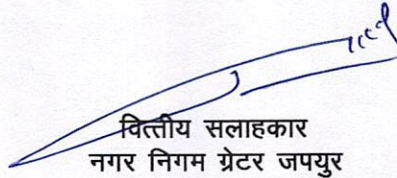 वित्तीय सलाहकार
नगर निगम ग्रेटर जपयुर